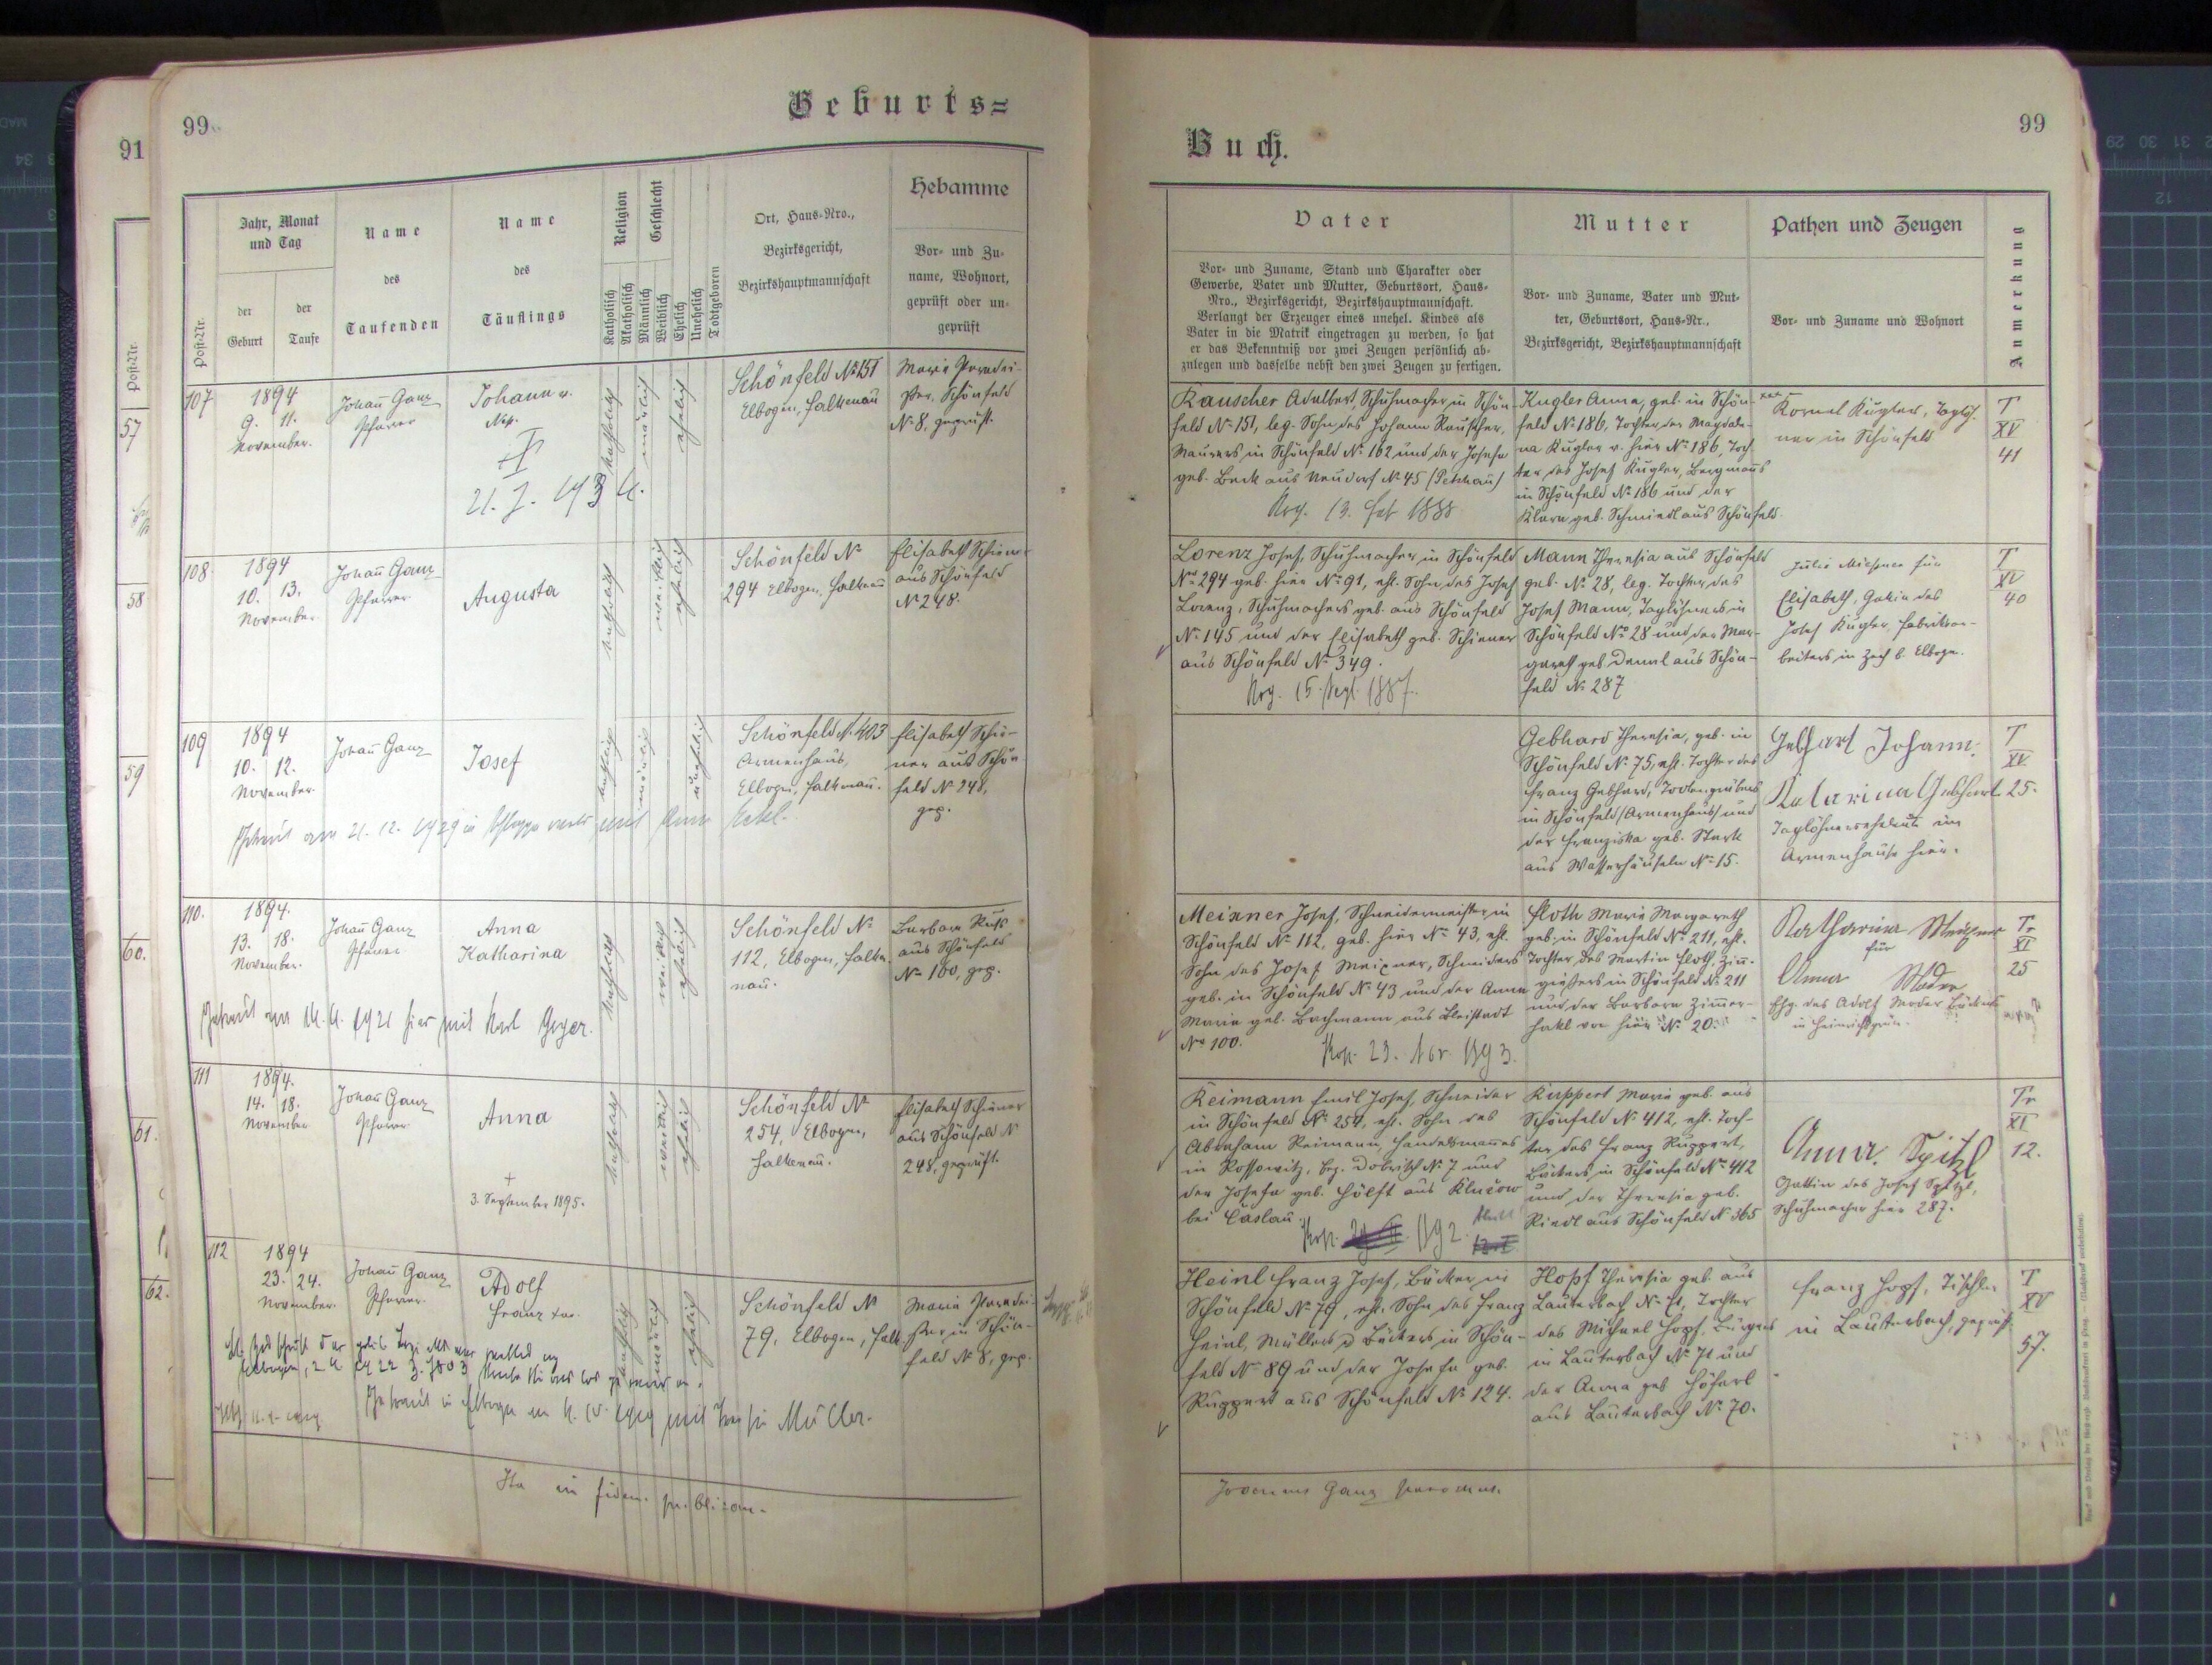 99.
Geburts=
Post-Nr.
Jahr, Monat
und Tag
der
Geburt
der
Taufe
Name
des
Taufenden
Name
des
Täuflings
Religion
Katholisch
Akatholisch
Geschlecht
Männlich
Weiblich
Ehelich
Unehelich
Todtgeboren
Ort, Haus-Nro.,
Bezirksgericht,
Bezirkshauptmannschaft
Hebamme
Vor- und Zu-
name, Wohnort,
geprüft oder un-
geprüft
107
1894
9. 11.
November.
Johann Ganz
Pfarrer
Johann v.
Nep.
katholisch
männlich
ehelich
Schönfeld No 151
Elbogen, Falkenau
Maria
Schönfeld
No 8, geprüft.
108.
1894
10. 13.
November.
Johann Ganz
Pfarrer
Augusta
katholisch
weiblich
ehelich
Schönfeld No
294 Elbogen, Falkenau
Elisabeth Schiener
aus Schönfeld
No 248.
109
1894
10. 12.
November.
Johann Ganz
Josef
katholisch
männlich
unehelich
Schönfeld N. 403
Armenhaus,
Elbogen, Falkenau.
Elisabeth Schie-
ner aus Schön-
feld No 248,
gep.
Getraut am 21. 12. 1929 in
110.
1894.
13. 18.
November.
Johann Ganz
Pfarrer
Anna
Katharina
katholisch
weiblich
ehelich
Schönfeld No
112, Elbogen, Falke-
nau.
Barbara
aus Schönfeld
No 100, gep.
1921 hier mit Karl Geyer.
111
1894.
14. 18.
November
Johann Ganz
Pfarrer
Anna
†
3. September 1895.
katholisch
weiblich
ehelich
Schönfeld No
254, Elbogen,
Falkenau.
Elisabeth Schiener
aus Schönfeld N
248, geprüft.
112
1894
23. 24.
November.
Johann Ganz
Pfarrer
Adolf
Franz Xav.
katholisch
männlich
ehelich
Schönfeld N
79, Elbogen, Falk.
Maria
in Schön-
feld No 8, gep.
Getraut in Elbogen am 1919 mit Müller.
Ita in fidem publicam.
91
Post-Nr.
57
58
59
60.
61.
62.
Buch.
99
Vater
Vor- und Zuname, Stand und Charakter oder
Gewerbe, Vater und Mutter, Geburtsort, Haus-
Nro., Bezirksgericht, Bezirkshauptmannschaft.
Verlangt der Erzeuger eines unehel. Kindes als
Vater in die Matrik eingetragen zu werden, so hat
er das Bekenntniß vor zwei Zeugen persönlich ab-
zulegen und dasselbe nebst den zwei Zeugen zu fertigen.
Mutter
Vor- und Zuname, Vater und Mut-
ter, Geburtsort, Haus-Nr.,
Bezirksgericht, Bezirkshauptmannschaft
Pathen und Zeugen
Vor- und Zuname und Wohnort
Anmerkung
Rauscher Adalbert, Schuhmacher in Schön-
feld No 151, leg. Sohn des Johann Rauscher,
Maurers in Schönfeld No 162 und der Josefa
geb. Beck aus Neudorf No 45 (Petschau)
13. Feb 1888
Kugler Anna, geb. in Schön-
feld No 186, Tochter der Magdale-
na Kugler v. hier No 186, Toch-
ter des Josef Kugler, Bergmanns
in Schönfeld No 186 und der
Klara geb. Schmiedl aus Schönfeld.
Kornel Kugler, Taglöh-
ner in Schönfeld
T
XV
41
Lorenz Josef, Schuhmacher in Schönfeld
No 294 geb. hier No 91, ehl. Sohn des Josef
Lorenz, Schuhmachers geb. aus Schönfeld
No 145 und der Elisabeth geb. Schiener
aus Schönfeld No 349.
15. Sept. 1887.
Mann Theresia aus Schönfeld
geb. No 28, leg. Tochter des
Josef Mann, Taglöhners in
Schönfeld No 28 und der Mar-
gareth geb. aus Schön-
feld No 287
Julie Meixner für
Elisabeth, Gattin des
Josef Kugler, Fabriksar-
beiters in Zech b. Elbogen.
T
XV
40
Gebhard Theresia, geb. in
Schönfeld No 75, ehl. Tochter des
Franz Gebhard, Todtengräbers
in Schönfeld (Armenhaus) und
der Franziska geb. Stark
aus Wasserhäuseln No 15.
Gebhart Johann.
Katarina Gebhart
Taglöhnerseheleute im
Armenhause hier.
T
XV
25.
Meixner Josef, Schneidermeister in
Schönfeld No 112, geb. hier No 43, ehl.
Sohn des Josef Meixner, Schneiders
geb. in Schönfeld No 43 und der Anna
Maria geb. Bachmann aus Bleistadt
No 100.
Kop. 23. Nov 1893.
Floth Maria Margareth
geb. in Schönfeld No 211, ehl.
Tochter des Martin Floth, Zinn-
gießers in Schönfeld No 211
und der Barbara Zimmer-
hakl von hier No 20.
Katharina Meixner
für
Anna Moder
Ehg. des Adolf Moder Bäckers
in Heinrichsgrün.
Tr
XI
25
Reimann Emil Josef, Schneider
in Schönfeld No 254, ehl. Sohn des
Abraham Reimann, Handelsmannes
in Rossowitz, Bez. Dobrisch No 7 und
der Josefa geb. Hölft aus Klučow
bei Čáslau.
Kop. 1892.
Ruppert Maria geb. aus
Schönfeld No 412, ehl. Toch-
ter des Franz Ruppert,
Bäckers in Schönfeld No 412
und der Theresia geb.
Riedl aus Schönfeld No 365
Anna Spitzl
Gattin des Josef Spitzl,
Schuhmacher hier 287.
Tr
XI
12.
Heinl Franz Josef, Bäcker in
Schönfeld No 79, ehl. Sohn des Franz
Heinl, Müllers & Bäckers in Schön-
feld No 89 und der Josefa geb.
Ruppert aus Schönfeld No 124.
Hopf Theresia geb. aus
Lauterbach No 71, Tochter
des Michael Hopf, Bürgers
in Lauterbach No 71 und
der Anna geb Höferl
aus Lauterbach No 70.
Franz Hopf, Tischler
in Lauterbach, geprüft.
T
XV
57.
Joannes Ganz parochus.